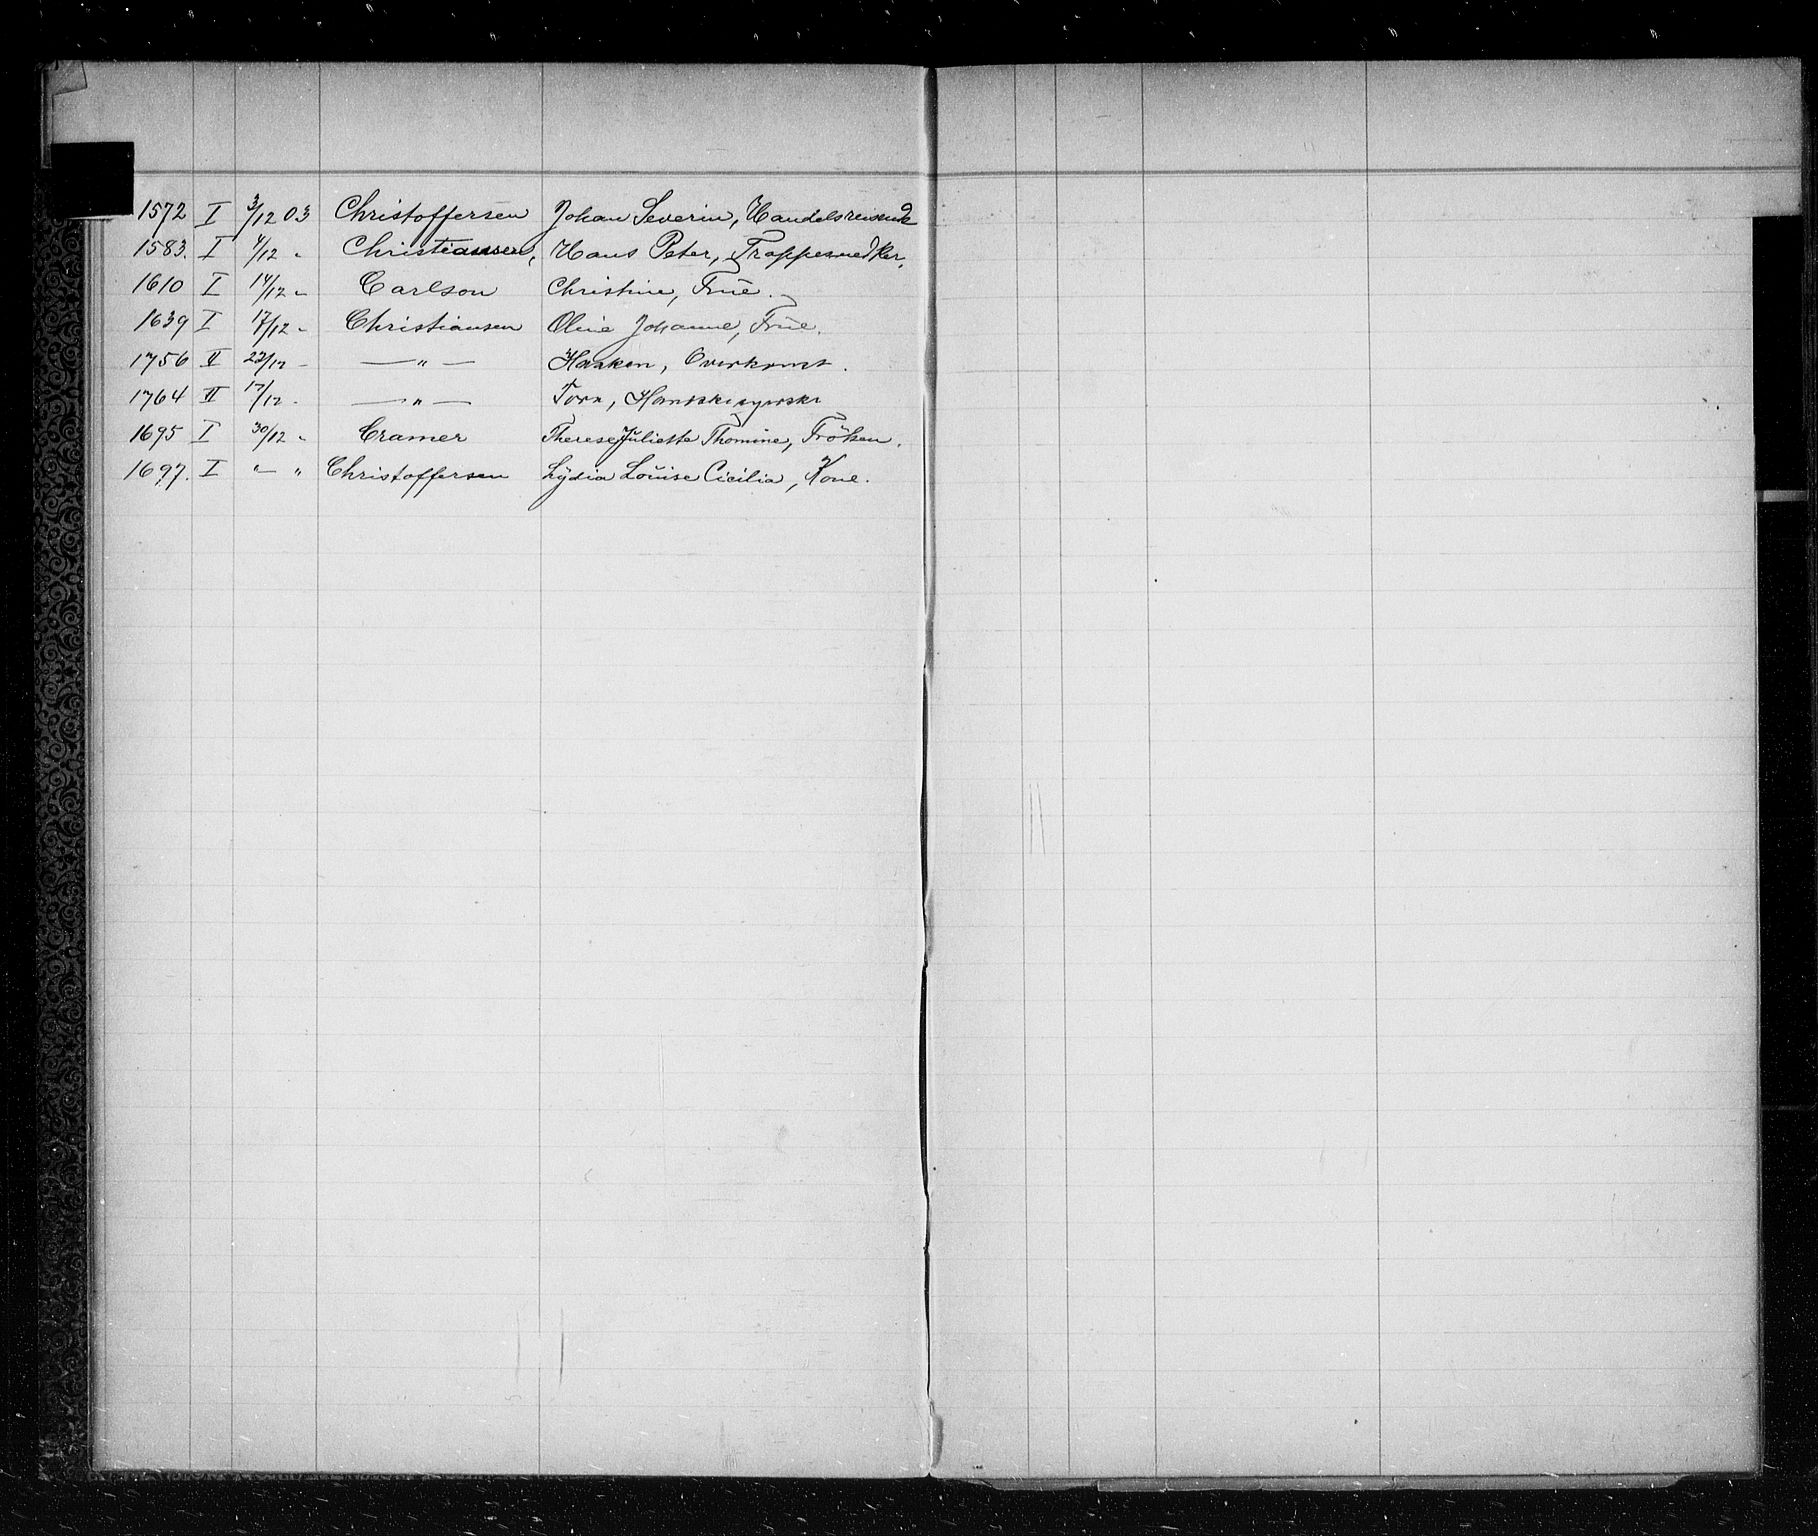 1572 I 3/12 03 Christoffersen Johan Severin, Handelsreisende
1583. I 4/12 " Christiansen, Hans Peter, Trappesnedker.
1610 I 14/12 " Carlson Christine, Frue.
1639 I 17/12 " Christiansen Oline Johanne, Frue.
1756 II 23/12 — — " — Haakon, Overkonst.
1764 II 17/12 - — " — Tora, Hanskesyerske
1695 I 30/12 " Cramer Therese Juliette Thomine, Fröken.
1697. I " — " Christoffersen Lydia Louise Cicilia, Kone.